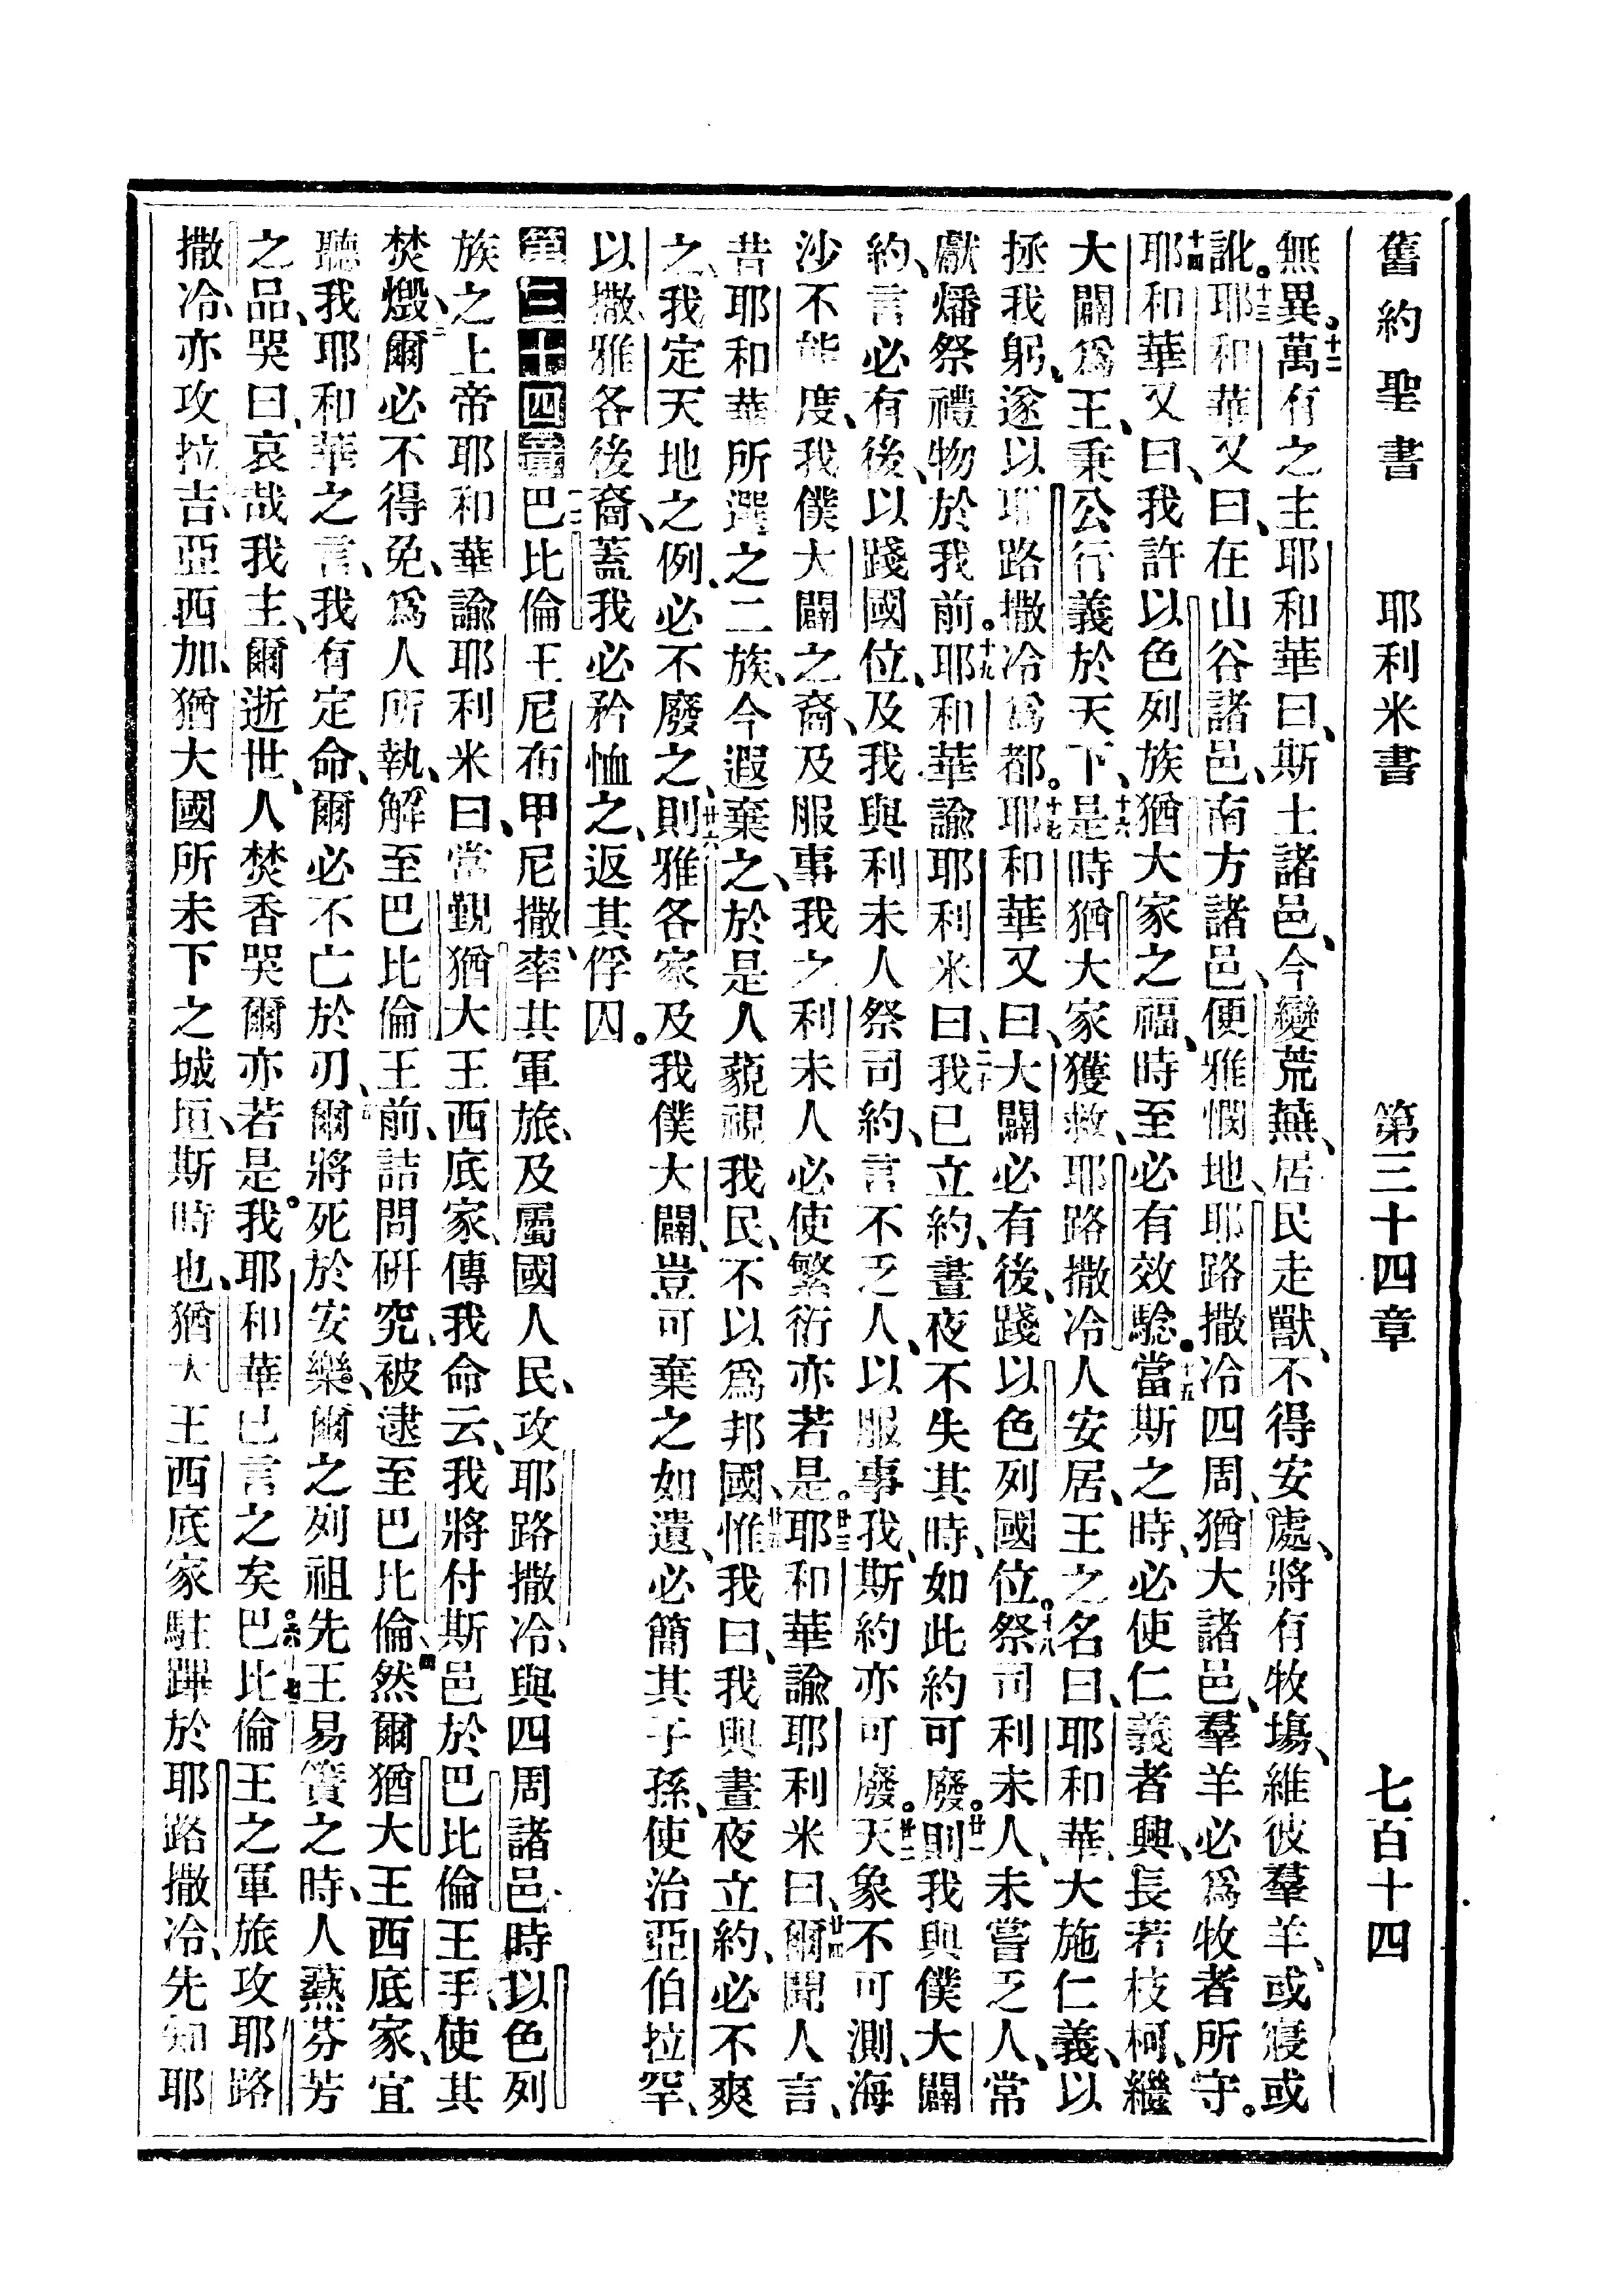 舊約聖書 耶利米書 第三十四章 七百十四
無異。十二萬有之主耶和華曰、斯土諸邑、今變荒蕪、居民走獸、不得安處、將有牧塲、維彼羣羊、或寢或
訛。十三耶和華又曰、在山谷諸邑、南方諸邑、便雅憫地、耶路撒冷四周、猶大諸邑、羣羊必爲牧者所守。
十四耶和華又曰、我許以色列族猶大家之福、時至必有效騐。十五當斯之時、必使仁義者興、長若枝柯、繼
大闢爲王、秉公行義於天下、十六是時猶大家獲救、耶路撒冷人安居、王之名曰、耶和華、大施仁義、以
拯我躬、遂以耶路撒冷爲都。十七耶和華又曰、大闢必有後、踐以色列國位。十八祭司利未人、未嘗乏人、常
獻燔祭禮物於我前。十九耶和華諭耶利米曰、二十我已立約、晝夜不失其時、如此約可廢。廿一則我與僕大闢
約、言必有後、以踐國位、及我與利未人祭司約、言不乏人、以服事我、斯約亦可廢。廿二天象不可測、海
沙不能度、我僕大闢之裔、及服事我之利未人必使繁衍亦若是。廿三耶和華諭耶利米曰、廿四爾聞人言、
昔耶和華所選之二族、今遐棄之、於是人藐視我民、不以爲邦國、廿五惟我曰、我與晝夜立約、必不爽
之、我定天地之例、必不廢之、廿六則雅各家及我僕大闢、豈可棄之如遺、必簡其子孫、使治亞伯拉罕、
以撒、雅各後裔、蓋我必矜恤之、返其俘囚。
第三十四章 一巴比倫王尼布甲尼撒、率其軍旅、及屬國人民、攻耶路撒冷、與四周諸邑、時以色列
族之上帝耶和華諭耶利米曰、二當覲猶大王西底家、傳我命云、我將付斯邑於巴比倫王手、使其
焚燬、三爾必不得免、爲人所執、解至巴比倫王前、詰問研究、被逮至巴比倫、四然爾猶大王西底家、宜
聽我耶和華之言、我有定命、爾必不亡於刃、五爾將死於安樂、爾之列祖先王易簀之時、人爇芬芳
之品、哭曰、哀哉我主、爾逝世、人焚香哭爾亦若是。我耶和華已言之矣。六七巴比倫王之軍旅攻耶路
撒冷、亦攻拉吉、亞西加、猶大國所未下之城垣、斯時也、猶大王西底家駐蹕於耶路撒冷、先知耶